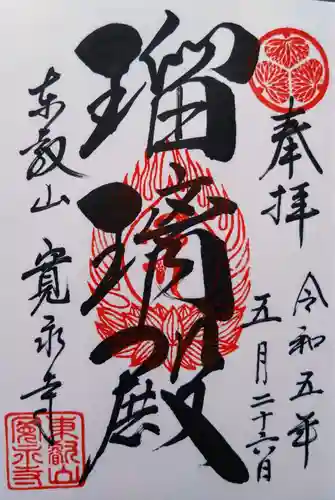 奉拝
令和五年
五月二十六日
瑠璃殿
東叡山 寛永寺
東叡山
寛永寺